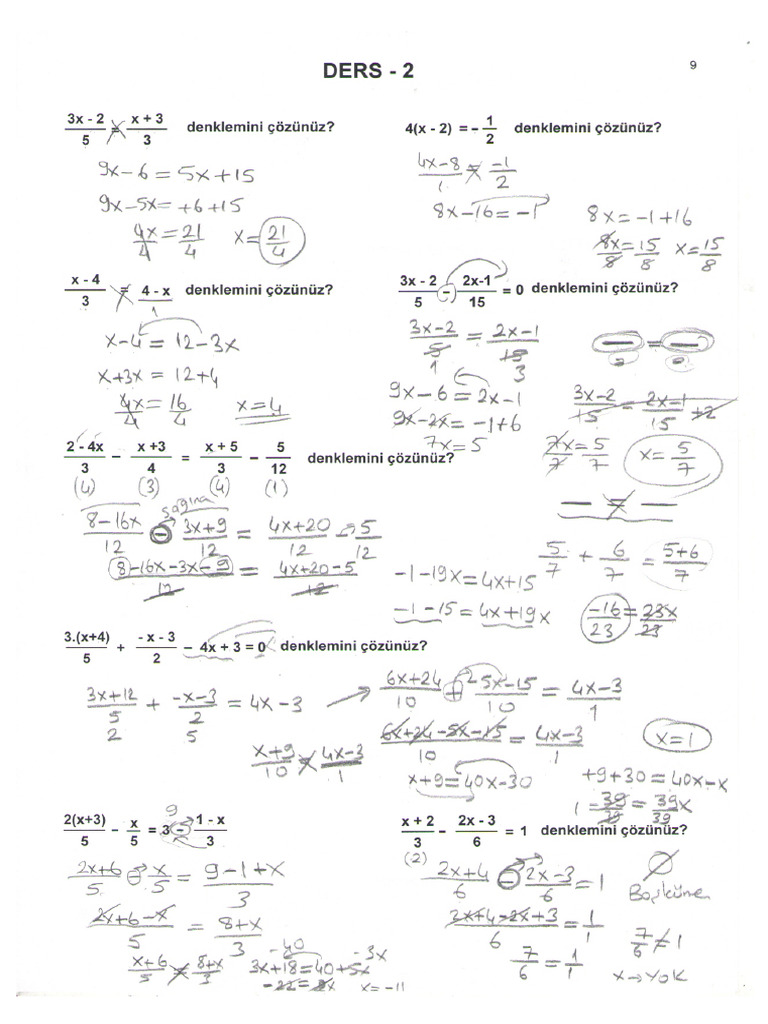 DERS - 2
9
3x - 2 / 5 = x + 3 / 3 denklemini çözünüz?
9x - 6 = 5x + 15
9x - 5x = +6 + 15
4x / 4 = 21 / 4 x = 21 / 4
4(x - 2) = - 1 / 2 denklemini çözünüz?
4x - 8 / 1 = -1 / 2
8x - 16 = -1 8x = -1 + 16
8x / 8 = 15 / 8 x = 15 / 8
x - 4 / 3 = 4 - x / 1 denklemini çözünüz?
x - 4 = 12 - 3x
x + 3x = 12 + 4
4x / 4 = 16 / 4 x = 4
3x - 2 / 5 - 2x-1 / 15 = 0 denklemini çözünüz?
3x - 2 / 5 = 2x - 1 / 15
1 3
9x - 6 = 2x - 1
9x - 2x = -1 + 6
7x = 5
3x - 2 / 15 = 2x - 1 / 15 + 2
7x / 7 = 5 / 7 x = 5 / 7
2 - 4x / 3 - x +3 / 4 = x + 5 / 3 - 5 / 12 denklemini çözünüz?
(4) (3) (4) (1)
sağına
8 - 16x / 12 - 3x + 9 / 12 = 4x + 20 / 12 - 5 / 12
8 - 16x - 3x - 9 / 12 = 4x + 20 - 5 / 12
- = -
5 / 7 + 6 / 7 = 5 + 6 / 7
-1 - 19x = 4x + 15
-1 - 15 = 4x + 19x -16 / 23 = 23x / 23
3.(x+4) / 5 + -x - 3 / 2 - 4x + 3 = 0 denklemini çözünüz?
3x + 12 / 5 + -x - 3 / 2 = 4x - 3
2 5
6x + 24 / 10 + -5x - 15 / 10 = 4x - 3 / 1
6x + 24 - 5x - 15 / 10 = 4x - 3 / 1 x = 1
x + 9 / 10 = 4x - 3 / 1
x + 9 = 40x - 30
+9 + 30 = 40x - x
1 = 39 / 39 = 39x / 39
2(x+3) / 5 - x / 5 = 3 - 1 - x / 3
9
2x + 6 / 5 - x / 5 = 9 - 1 + x / 3
2x + 6 - x / 5 = 8 + x / 3
x + 6 / 5 = 8 + x / 3
-40 -3x
3x + 18 = 40 + 5x
-22 = 2x x = -11
x + 2 / 3 - 2x - 3 / 6 = 1 denklemini çözünüz?
(2)
2x + 4 / 6 - 2x - 3 / 6 = 1
2x + 4 - 2x + 3 / 6 = 1 / 1
7 / 6 = 1 / 1
∅
Boşküme
7 / 6 ≠ 1
x → YOK